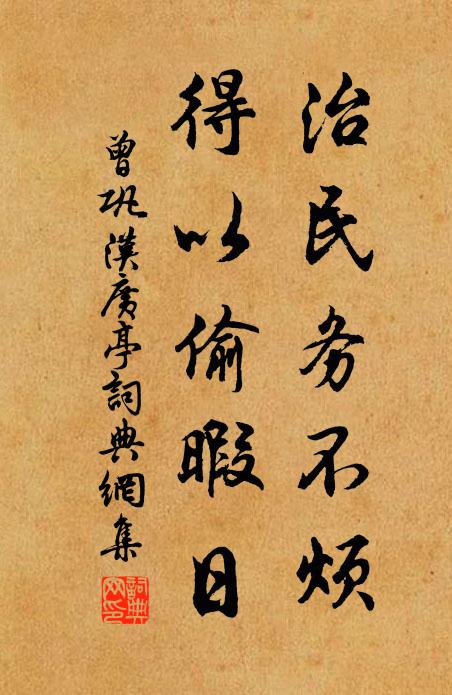 治民务不烦
得以偷暇日
曾巩漢廣亭詞典網集
詞典网印